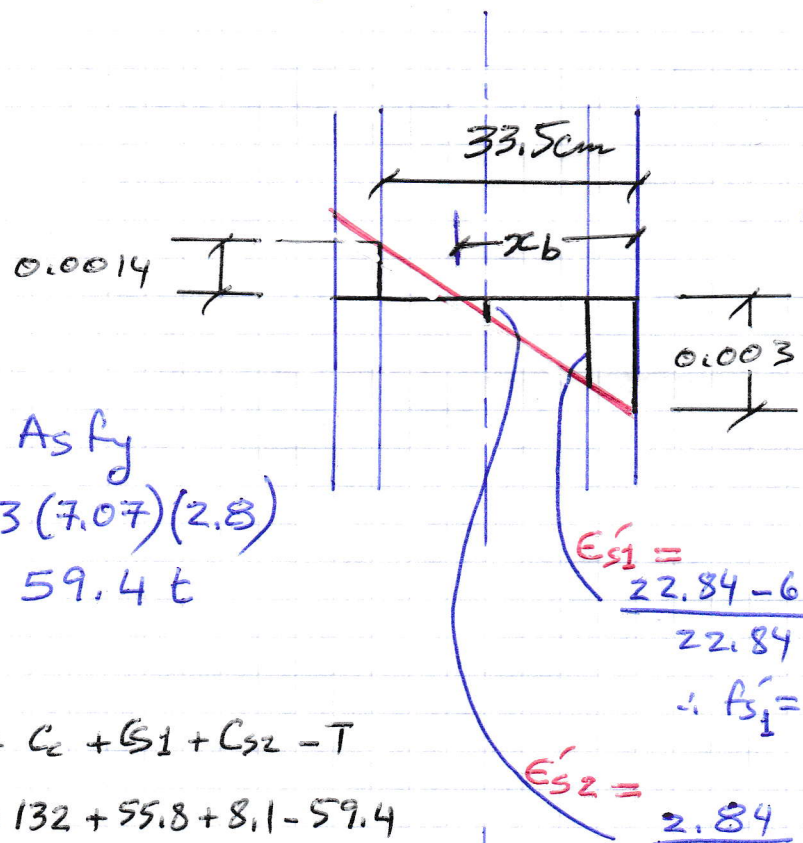 33.5cm
x_b
0.0014
0.003
As fy
3 (7.07)(2.8)
59.4 t
Es1' =
22.84 - 6
22.84
∴ fs1' =
Cc + Cs1 + Cs2 - T
132 + 55.8 + 8.1 - 59.4
Es2' =
2.84